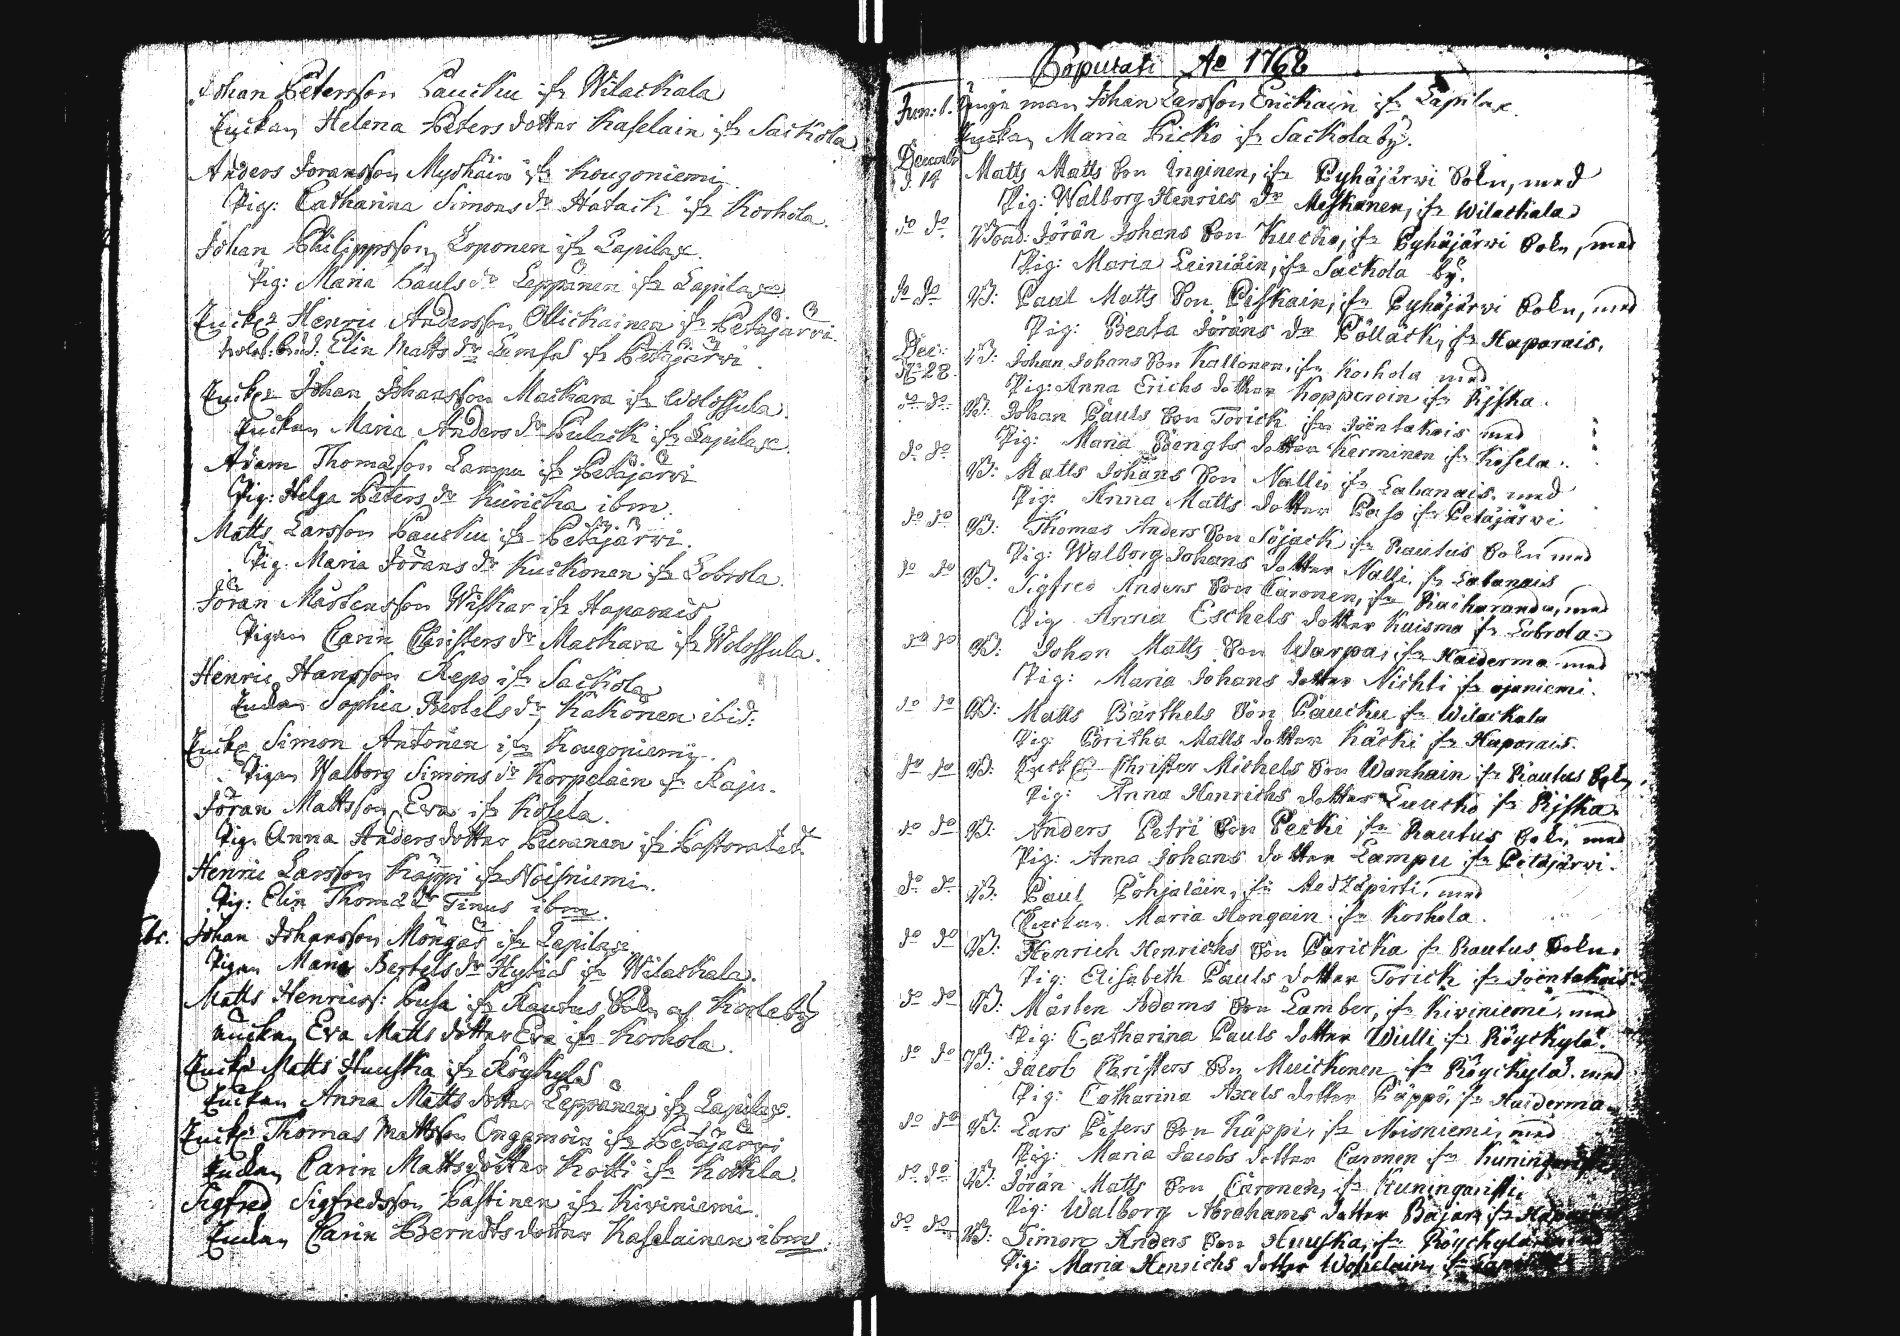 Johan Petersson Paucku ifr Wilackala
Enckan Helena Peters dotter Kaselain ifr Sackola
Anders Joransson Myöhäin ifr Kougoniemi
Pig: Catharina Simons dr Hatack ifr Korhola.
Johan Philippsson Loponen ifr Lapilax.
Pig: Maria Pauls dr Leppänen ifr Lapilax.
Enckl: Henric Andersson Ollickainen ifr Petäjärvi.
Elin Matts dr ifr Petäjärvi.
Enckl: Johan Johansson Mackara ifr Wolossula.
Enckan Maria Anders dr Pulack ifr Lapilax.
Adam Thomasson Lampu ifr Petäjärvi
Pig: Helga Peters dr Kuiricka ibm.
Matts Larsson Paucku ifr Petäjärvi.
Pig: Maria Jörans dr Kuckonen ifr Lobrola.
Jöran Mårtensson Wiskar ifr Haparais
Pigan Carin Christers dr Mackara ifr Wolossula.
Henric Hansson Repo ifr Sackola
Enckan Sophia Bertels dr Kakönen ibid:
Enckl Simon Antonen ifr Kougoniemi.
Pigan Walborg Simons dr Korpelain ifr Raju.
Jöran Mattsson Eva ifr Kosela.
Pig: Anna Anders dotter Puranen ifr Pastoratet.
Henric Larsson Käppi ifr Noisniemi.
Pig: Elin Thomas dr Tinus ibm.
Johan Johansson Möngäs ifr Lapilax
Pigan Maria Bertels dr Hytiä ifr Wilackala.
Matts Henricss: Pusa ifr Rautus Sokn af Korleby
Enckan Eva Matts dotter Eva ifr Korhola.
Enckl Matts Huuska ifr Röyckylä
Enckan Anna Matts dotter Leppänen ifr Lapilax.
Enckl: Thomas Mattsson Inggmoin ifr Petäjärvi
Enckan Carin Matts dotter Kotti ifr Kottila.
Sigfred Sigfredsson Pastinen ifr Kiviniemi.
Enckan Carin Berndts dotter Kaselainen ibm.
Copulati Ao 1768
Jun: 6. Ynge man Johan Larsson Enckain ifr Lapilax.
Enckan Maria Picko ifr Sackola by.
Decemb
d. 18 Matts Matts Son Inginen, ifr Pyhäjärwi Sokn, med
Pig: Walborg Henrics dr Meskänen, ifr Wilackala
do do Jörän Johans Son Kucko, ifr Pyhäjärwi Sokn, med
Pig: Maria Leiniäin, ifr Sackola by.
do do Paul Matts Son Piskain, ifr Pyhäjärwi Sokn, med
Pig: Beata Jöräns dr Pölläck, ifr Haparais.
Dec:
28 Johan Johans Son Kallonen, ifr Korhola med
Pig: Anna Erichs dotter Kopperoin ifr Rijska.
do do Johan Pauls Son Torick ifr Joentakais med
Pig: Maria Bengts dotter Kerminen ifr Kosela.
do do Matts Johans Son Nalli, ifr Labanais, med
Pig: Anna Matts dotter Paso ifr Petäjärvi
do do Thomas Anders Son Söjack ifr Rautus Sokn med
Pig: Walborg Johans dotter Nalli, ifr Labanais
do do Sigfred Anders Son Caronen, ifr Raiharanda, med
Pig Anna Eschels dotter Kuisma ifr Lobrola.
do do Johan Matts Son Warpa, ifr Haiderma med
Pig: Maria Johans dotter Nickti ifr ojaniemi.
do do Matts Barthels Son Paucku ifr Wilackala
Pig: Boritha Matts dotter Käcki ifr Haparais.
do do Christer Michels Son Wanhain ifr Rautus Sokn,
Pig: Anna Henrichs dotter Luucko ifr Rijska.
do do Anders Petri Son Pecki ifr Rautus Sokn, med
Pig: Anna Johans dotter Lampu ifr Petäjärvi.
do do Paul Pohjaläin, ifr Metzäpirti, med
Enckan Maria Hongain ifr Korhola.
do do Henrich Henrichs Son Paricka ifr Rautus Sokn.
Pig: Elisabeth Pauls dotter Torick ifr Joentakais.
do do Mårten Adams Son Lamber, ifr Kiviniemi, med
Pig: Catharina Pauls dotter Wulli ifr Röyckylä.
do do Jacob Christers Son Muickonen ifr Röyckylä. med
Pig: Catharina Axels dotter Päppö, ifr Haiderma
do do Lars Peters Son Käppi, ifr Noisniemi, med
Pig: Maria Jacobs dotter Caronen ifr
do do Jörän Matts Son Caronen, ifr Kuningaristi,
Pig: Walborg Abrahams dotter Bajari ifr
do do Simon Anders Son Huuska, ifr Röyckylä
Pig: Maria Henrichs dotter ifr